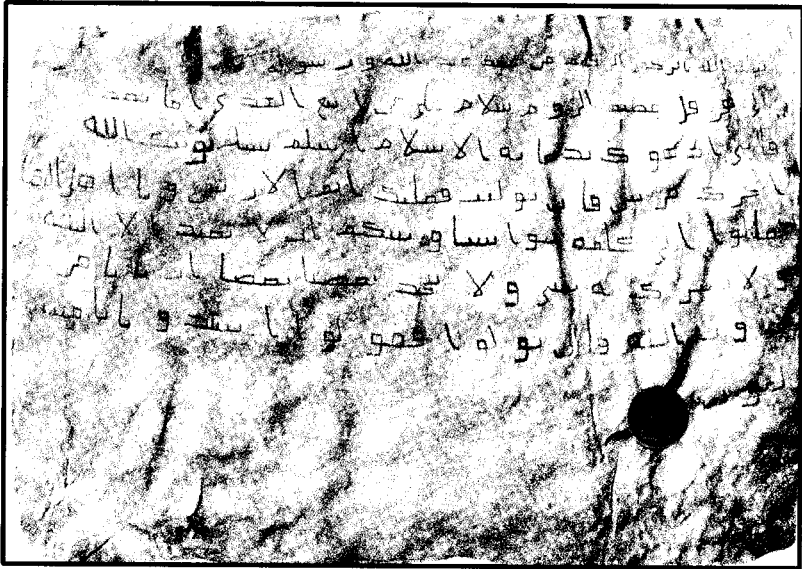 بسم الله الرحمن الرحيم من محمد عبد الله ورسوله
الى هرقل عظيم الروم سلام على من اتبع الهدى اما بعد
فانى ادعوك بدعايه الاسلام اسلم تسلم يوتك الله
اجرك مرتين فان توليت فعليك اثم الاريسين ويا اهل
تعالوا الى كلمه سوا بيننا وبينكم الا نعبد الا الله
ولا نشرك به شى ولا يتخد بعضنا بعضا اربابا من
دون الله فان تولوا فقولوا اشهدوا بانا مس
لمون